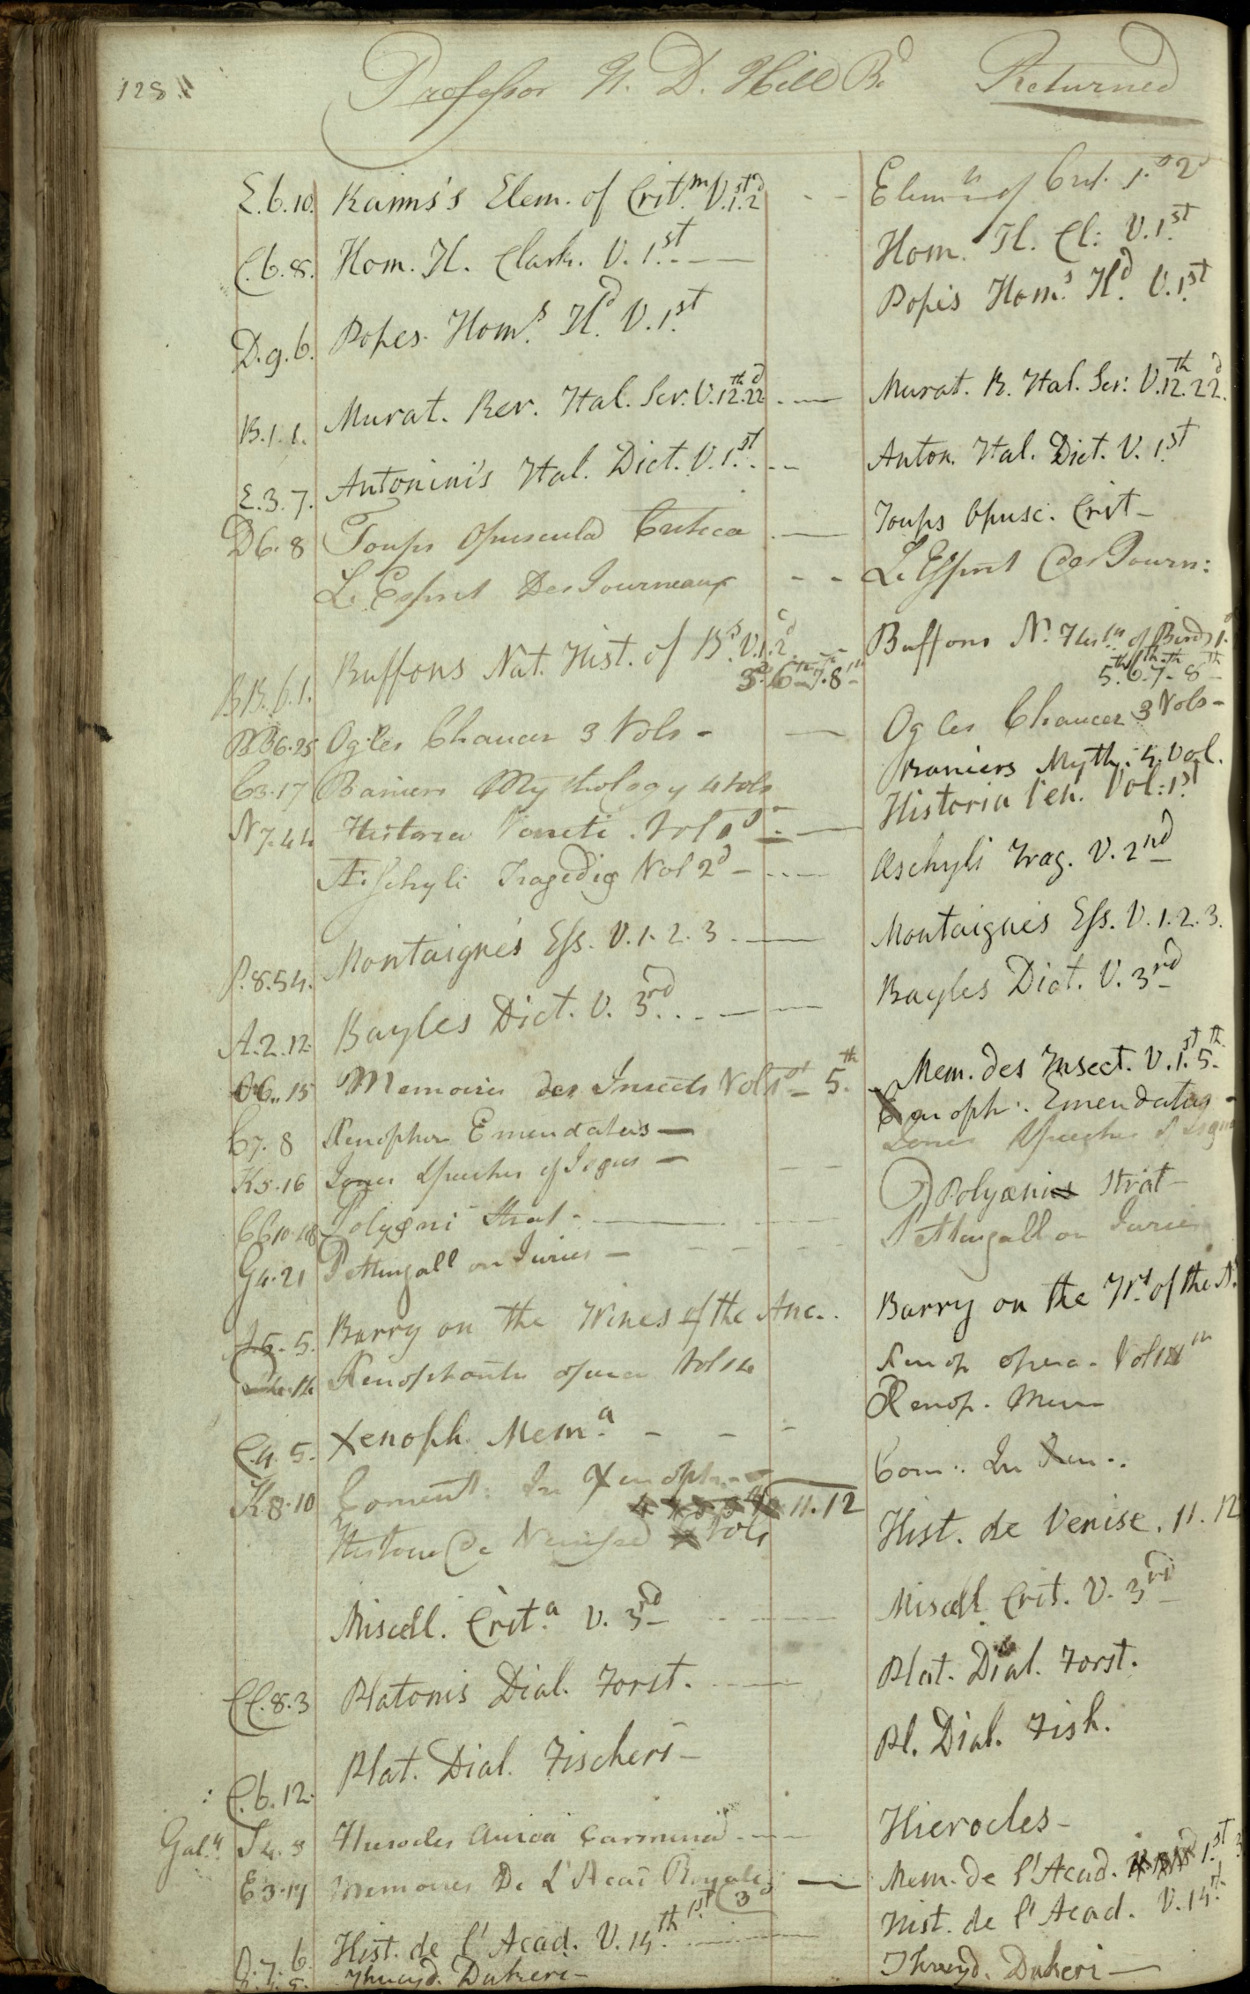 128
Professor N. D. Hill Bd Returned
E.6.10. Kaims's Elem. of Crit.m V.1.st 2d - - Elem.ts of Crit. 1.st 2d
C.6.8. Hom. Il. Clark. V. 1.st - — Hom. Il. Cl: V.1.st
D.9.6. Popes Hom.s Il.d V.1.st Popes Hom.s Il.d V.1.st
B.1.1. Murat. Rer. Ital. Scr. V.12th.22d - — Murat. R. Ital. Scr: V.12th.22d.
E.3.7. Antonini's Ital. Dict. V.1.st - -- Anton. Ital. Dict. V. 1st
D6.8 Toups Opuscula Critica - — Toups Opusc. Crit -
L'Esprit Des Journeaux - - L'Esprit des Journ:
BB.6.1. Buffons Nat. Hist. of B.s V.1.2d Buffons N. Hist. of Birds 1.
5.th 6th 7.8th 5.th 6.th 7th 8th
BB6.25 Ogles Chaucer 3 Vols - — Ogles Chaucer 3 Vols -
C3.17 Baniers Mythology 4 Vols Baniers Myth. 4. Vol.
N7.44 Historia Veneti. Vol 1st - — Historia Ven. Vol: 1st
Æschyli Tragediæ Vol 2d - ... — Æschyli Trag. V. 2nd
P.8.54. Montaigne's Ess. V.1.2.3 - — Montaigne's Ess. V.1.2.3.
A.2.12. Bayles Dict. V. 3rd - — Bayles Dict. V. 3rd
O6..15 Memoires des Insects Vol 1st - 5.th Mem. des Insect. V.1.st 5.th
C7.8 Xenophon Emendatus — Xenoph: Emendatus -
K5.16 Jones Speeches of Iseus — - - Jones Speeches of Iseus
CC10.18 Polyæni Strat - — Polyæni Strat -
G4.21 Pettingall on Juries — - - - Pettingall on Juries
5.5. Barry on the Wines of the Anc.. Barry on the W.s of the A.
Xenophontis opera Vol 14 Xenop opera - Vol 14th
C.4.5. Xenoph. Mem.a - - - Xenop. Mem
K8.10 Coment: In Xenoph. - - Com:. In Xen..
11.12
Histoire de Venise Vols Hist. de Venise, 11.12
Miscell. Crit.a V. 3rd - — Miscell. Crit. V. 3rd
CC.8.3 Platonis Dial. Forst. - — Plat. Dial. Forst.
C.6.12. Plat. Dial. Fischeri - Pl. Dial. Fish.
Gal.y I4.3 Hierocles Aurea Carmina - — Hierocles -
E3.17 Memoires De L'Acad Royale — Mem. de l'Acad. 1.st 3
1.st 3d
7.6. Hist. de l'Acad. V.14.th - — Hist. de l'Acad. V.14.th
Thucyd. Dukeri - Thucyd. Dukeri —